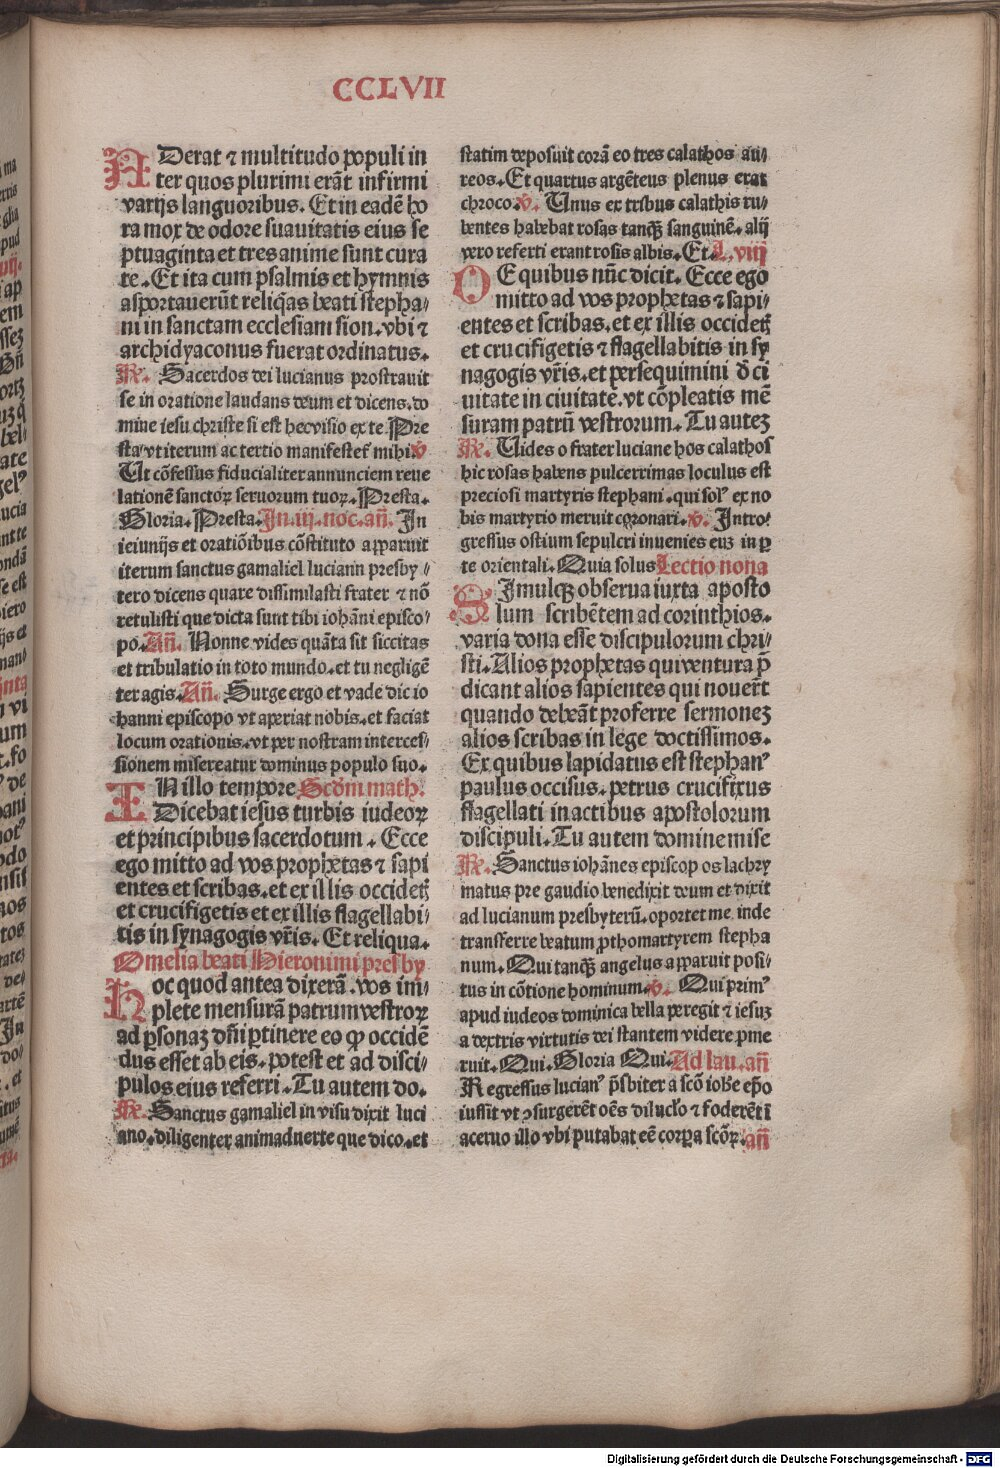 CCLVII
ADerat ⁊ multitudo populi in
ter quos plurimi erãt infirmi
varijs languoribus. Et in eadē ho
ra mox de odore suauitatis eius se
ptuaginta et tres anime sunt cura
te. Et ita cum psalmis et hymnis
asportauerũt reliq̃as beati stepha/
ni in sanctam ecclesiam sion. vbi ⁊
archidyaconus fuerat ordinatus.
℟. Sacerdos dei lucianus prostrauit
se in oratione laudans deum et dicens. do
mine iesu christe si est hec visio ex te. Pre
sta vt iterum ac tertio manifestet᷑ mihi. ℣
Ut cõfessus fiducialiter annunciem reue
lationē sanctoꝝ seruorum tuoꝝ. Presta.
Gloria. Presta. In. iij. noc. añ. In
ieiunijs et oratiõibus cõstituto apparuit
iterum sanctus gamaliel luciann presby/
tero dicens quare dissimilasti frater ⁊ nõ
retulisti que dicta sunt tibi iohãni episco/
po. Añ. Nonne vides quãta sit siccitas
et tribulatio in toto mundo. et tu negligē
ter agis. Añ. Surge ergo et vade dic io
hanni episcopo vt aperiat nobis. et faciat
locum orationis. vt per nostram interces/
sionem misereatur dominus populo suo.
IN illo tempore Scd̃m math.
Dicebat iesus turbis iudeoꝝ
et principibus sacerdotum. Ecce
ego mitto ad vos prophetas ⁊ sapi
entes et scribas. et ex illis occidetꝭ
et crucifigetis et ex illis flagellabi/
tis in synagogis vr̃is. Et reliqua.
Omelia beati Hieronimi presby
Hoc quod antea dixerã. vos im/
plete mensurã patrum vestroꝝ
ad ꝑsonaz dñi ꝑtinere eo ꝙ occidē
dus esset ab eis. potest et ad disci/
pulos eius referri. Tu autem do.
℟. Sanctus gamaliel in visu dixit luci
ano. diligenter animaduerte que dico. et
statim deposuit corã eo tres calathos au/
reos. Et quartus argēteus plenus erat
chroco. ℣. Unus ex tribus calathis ru/
bentes habebat rosas tanq̃ sanguinē. alij
vero referti erant rosis albis. Et. L. viij
DE quibus nũc dicit. Ecce ego
mitto ad vos prophetas ⁊ sapi/
entes et scribas. et ex illis occidetꝭ
et crucifigetis ⁊ flagellabitis in sy
nagogis vr̃is. et persequimini d̃ ci
uitate in ciuitatē. vt cõpleatis mē
suram patrũ vestrorum. Tu autez
℟. Uides o frater luciane hos calathos
hic rosas habens pulcerrimas loculus est
preciosi martyris stephani. qui solꝰ ex no
bis martyrio meruit coronari. ℣. Intro/
gressus ostium sepulcri inuenies euz in ꝑ
te orientali. Quia solus Lectio nona
SImulqꝫ obserua iuxta aposto
lum scribētem ad corinthios.
varia dona esse discipulorum chri/
sti. Alios prophetas qui ventura p̃
dicant alios sapientes qui nouer̃t
quando debeãt proferre sermonez
alios scribas in lege doctissimos.
Ex quibus lapidatus est stephanꝰ
paulus occisus. petrus crucifixus
flagellati in actibus apostolorum
discipuli. Tu autem domine mise
℟. Sanctus iohãnes episcop os lachry
matus pre gaudio benedixit deum et dixit
ad lucianum presbyterũ. oportet me inde
transferre beatum ꝓthomartyrem stepha
num. Qui tanq̃ angelus apparuit posi/
tus in cõtione hominum. ℣. Qui primꝰ
apud iudeos dominica bella peregit ⁊ iesuz
a dextris virtutis dei stantem videre ꝓme
ruit. Qui. Gloria Qui. Ad lau. añ
Regressus lucianꝰ p̃sbiter a scõ ioh̃e ep̃o
iussit vt ꝯsurgerēt oēs diluc̃lo ⁊ foderēt ĩ
aceruo illo vbi putabat eē corꝑa scõꝝ. añ
Digitalisierung gefördert durch die Deutsche Forschungsgemeinschaft - DFG